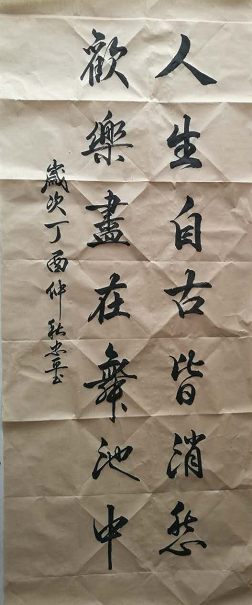 人生自古皆消愁
歡樂盡在舞池中
歲次丁酉仲秋